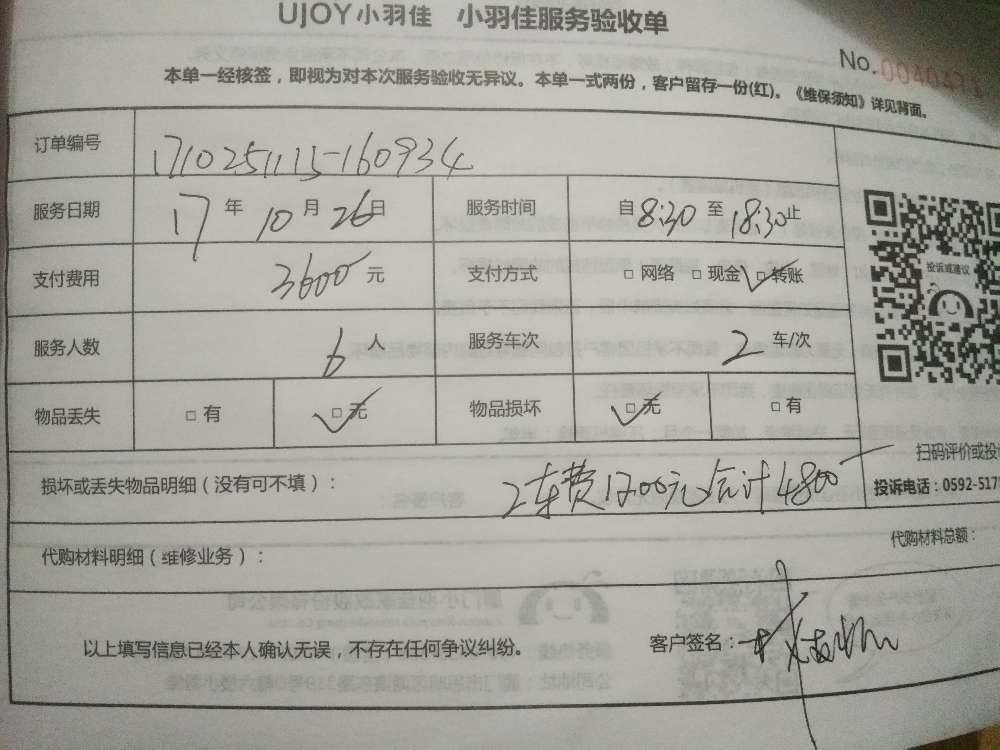 UJOY小羽佳 小羽佳服务验收单
No. 004047
本单一经核签，即视为对本次服务验收无异议。本单一式两份，客户留存一份(红)。《维保须知》详见背面。
订单编号 1710251115-160934
服务日期 17年10月26日 服务时间 自8:30至18:30止
支付费用 3600元 支付方式 □网络 □现金 ☑转账
投诉或建议
服务人数 6人 服务车次 2车/次
物品丢失 □有 ☑无 物品损坏 ☑无 □有
扫码评价或投
损坏或丢失物品明细（没有可不填）： 2车费1200元合计4800
投诉电话：0592-517
代购材料明细（维修业务）： 代购材料总额：
以上填写信息已经本人确认无误，不存在任何争议纠纷。 客户签名：